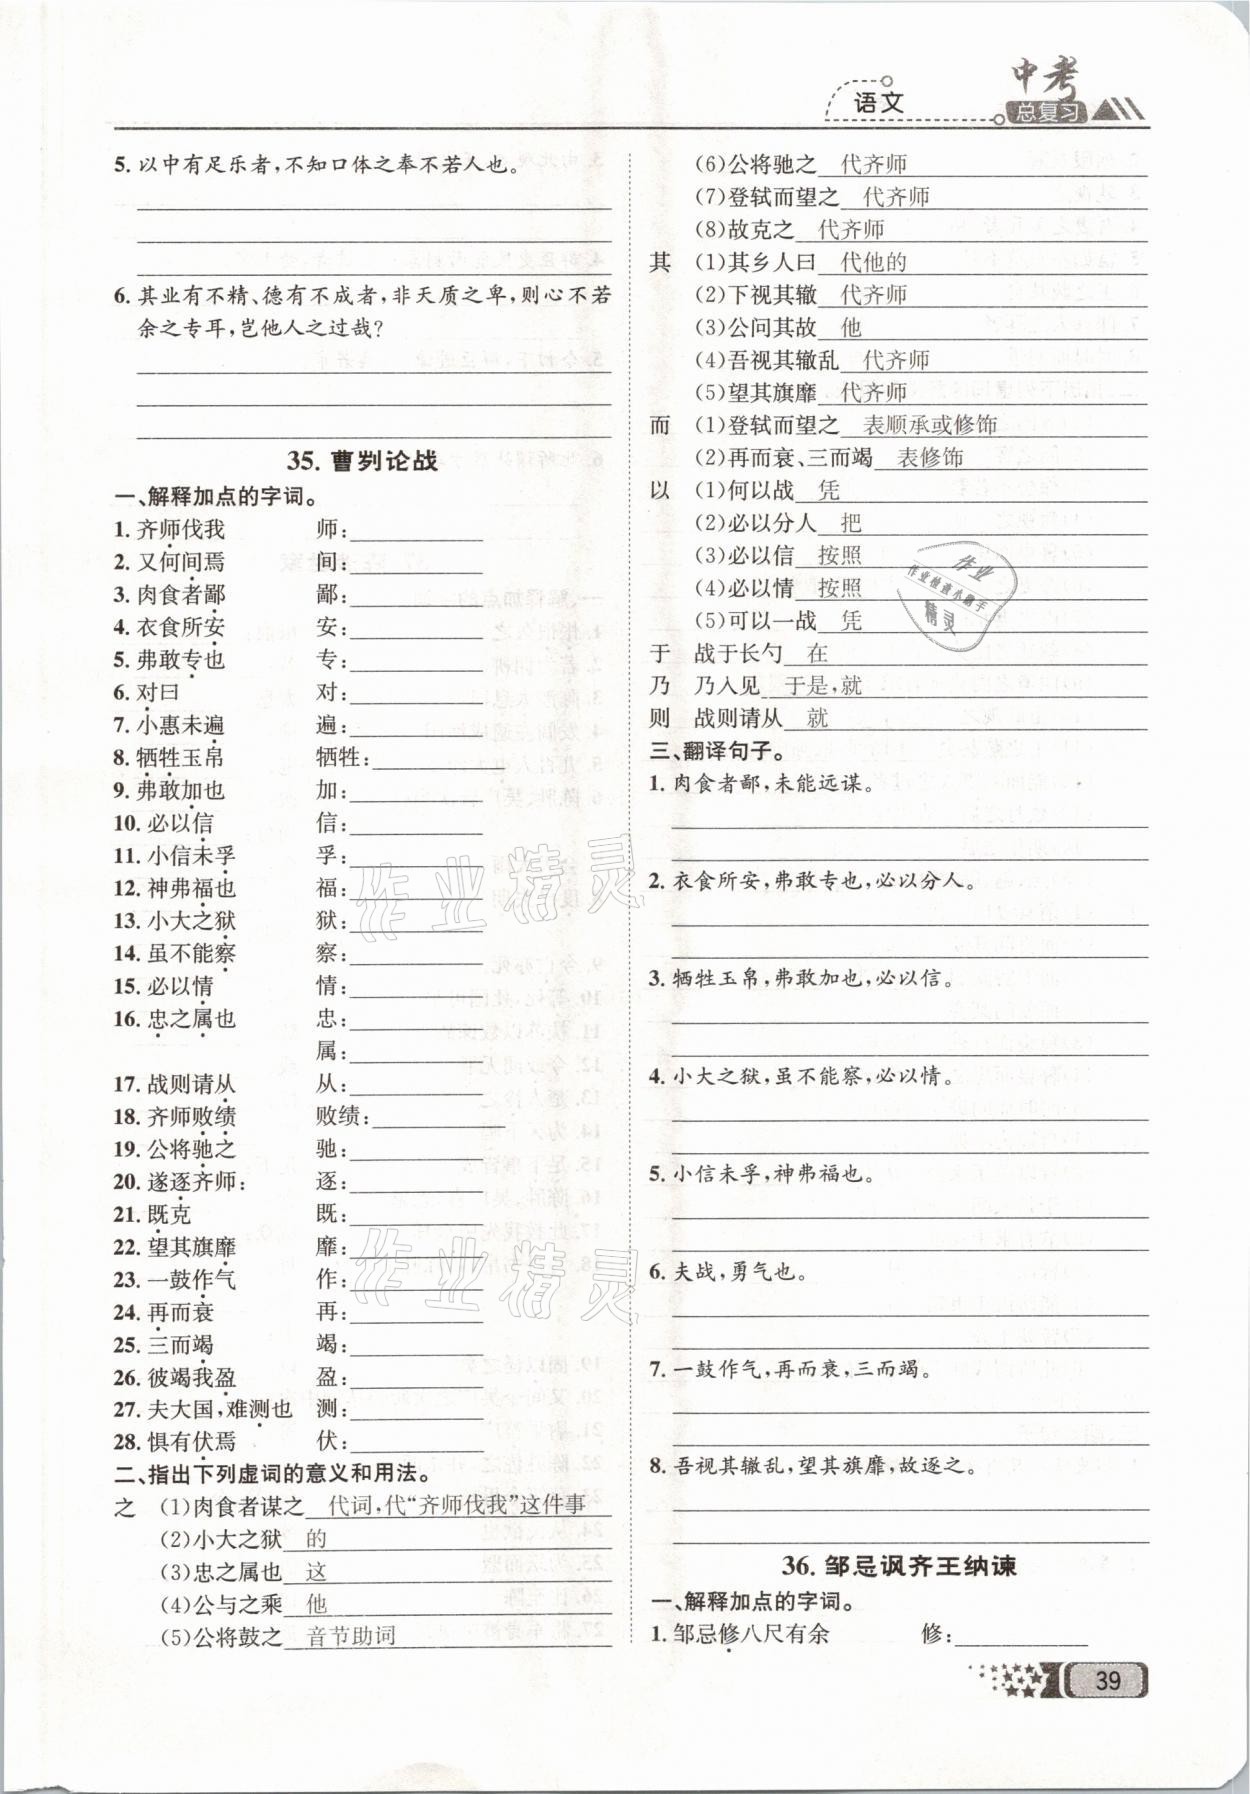 语文
中考
总复习
5. 以中有足乐者,不知口体之奉不若人也。
6. 其业有不精、德有不成者,非天质之卑,则心不若
余之专耳,岂他人之过哉?
35. 曹刿论战
一、解释加点的字词。
1. 齐师伐我 师:
2. 又何间焉 间:
3. 肉食者鄙 鄙:
4. 衣食所安 安:
5. 弗敢专也 专:
6. 对曰 对:
7. 小惠未遍 遍:
8. 牺牲玉帛 牺牲:
9. 弗敢加也 加:
10. 必以信 信:
11. 小信未孚 孚:
12. 神弗福也 福:
13. 小大之狱 狱:
14. 虽不能察 察:
15. 必以情 情:
16. 忠之属也 忠:
属:
17. 战则请从 从:
18. 齐师败绩 败绩:
19. 公将驰之 驰:
20. 遂逐齐师: 逐:
21. 既克 既:
22. 望其旗靡 靡:
23. 一鼓作气 作:
24. 再而衰 再:
25. 三而竭 竭:
26. 彼竭我盈 盈:
27. 夫大国,难测也 测:
28. 惧有伏焉 伏:
二、指出下列虚词的意义和用法。
之 (1)肉食者谋之 代词,代“齐师伐我”这件事
(2)小大之狱 的
(3)忠之属也 这
(4)公与之乘 他
(5)公将鼓之 音节助词
(6)公将驰之 代齐师
(7)登轼而望之 代齐师
(8)故克之 代齐师
其 (1)其乡人曰 代他的
(2)下视其辙 代齐师
(3)公问其故 他
(4)吾视其辙乱 代齐师
(5)望其旗靡 代齐师
而 (1)登轼而望之 表顺承或修饰
(2)再而衰、三而竭 表修饰
以 (1)何以战 凭
(2)必以分人 把
(3)必以信 按照
(4)必以情 按照
(5)可以一战 凭
于 战于长勺 在
乃 乃入见 于是,就
则 战则请从 就
三、翻译句子。
1. 肉食者鄙,未能远谋。
2. 衣食所安,弗敢专也,必以分人。
3. 牺牲玉帛,弗敢加也,必以信。
4. 小大之狱,虽不能察,必以情。
5. 小信未孚,神弗福也。
6. 夫战,勇气也。
7. 一鼓作气,再而衰,三而竭。
8. 吾视其辙乱,望其旗靡,故逐之。
36. 邹忌讽齐王纳谏
一、解释加点的字词。
1. 邹忌修八尺有余 修:
39
作业
作业检查小助手
精灵
作业精灵
作业精灵